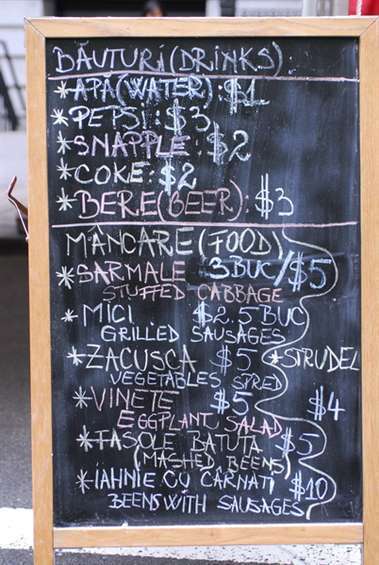 BĂUTURI (DRINKS):
*APĂ (WATER): $1
*PEPSI: $3
*SNAPPLE: $2
*COKE: $2
*BERE (BEER): $3
MÂNCARE (FOOD)
*SARMALE 3BUC/$5
STUFFED CABBAGE
*MICI $2.5 BUC
GRILLED SAUSAGES
*ZACUSCA $5 *STRUDEL
VEGETABLES SPRED
*VINETE $5 $4
EGGPLANT SALAD
*FASOLE BATUTA $5
(MASHED BEENS)
*IAHNIE CU CÂRNATI $10
BEENS WITH SAUSAGES